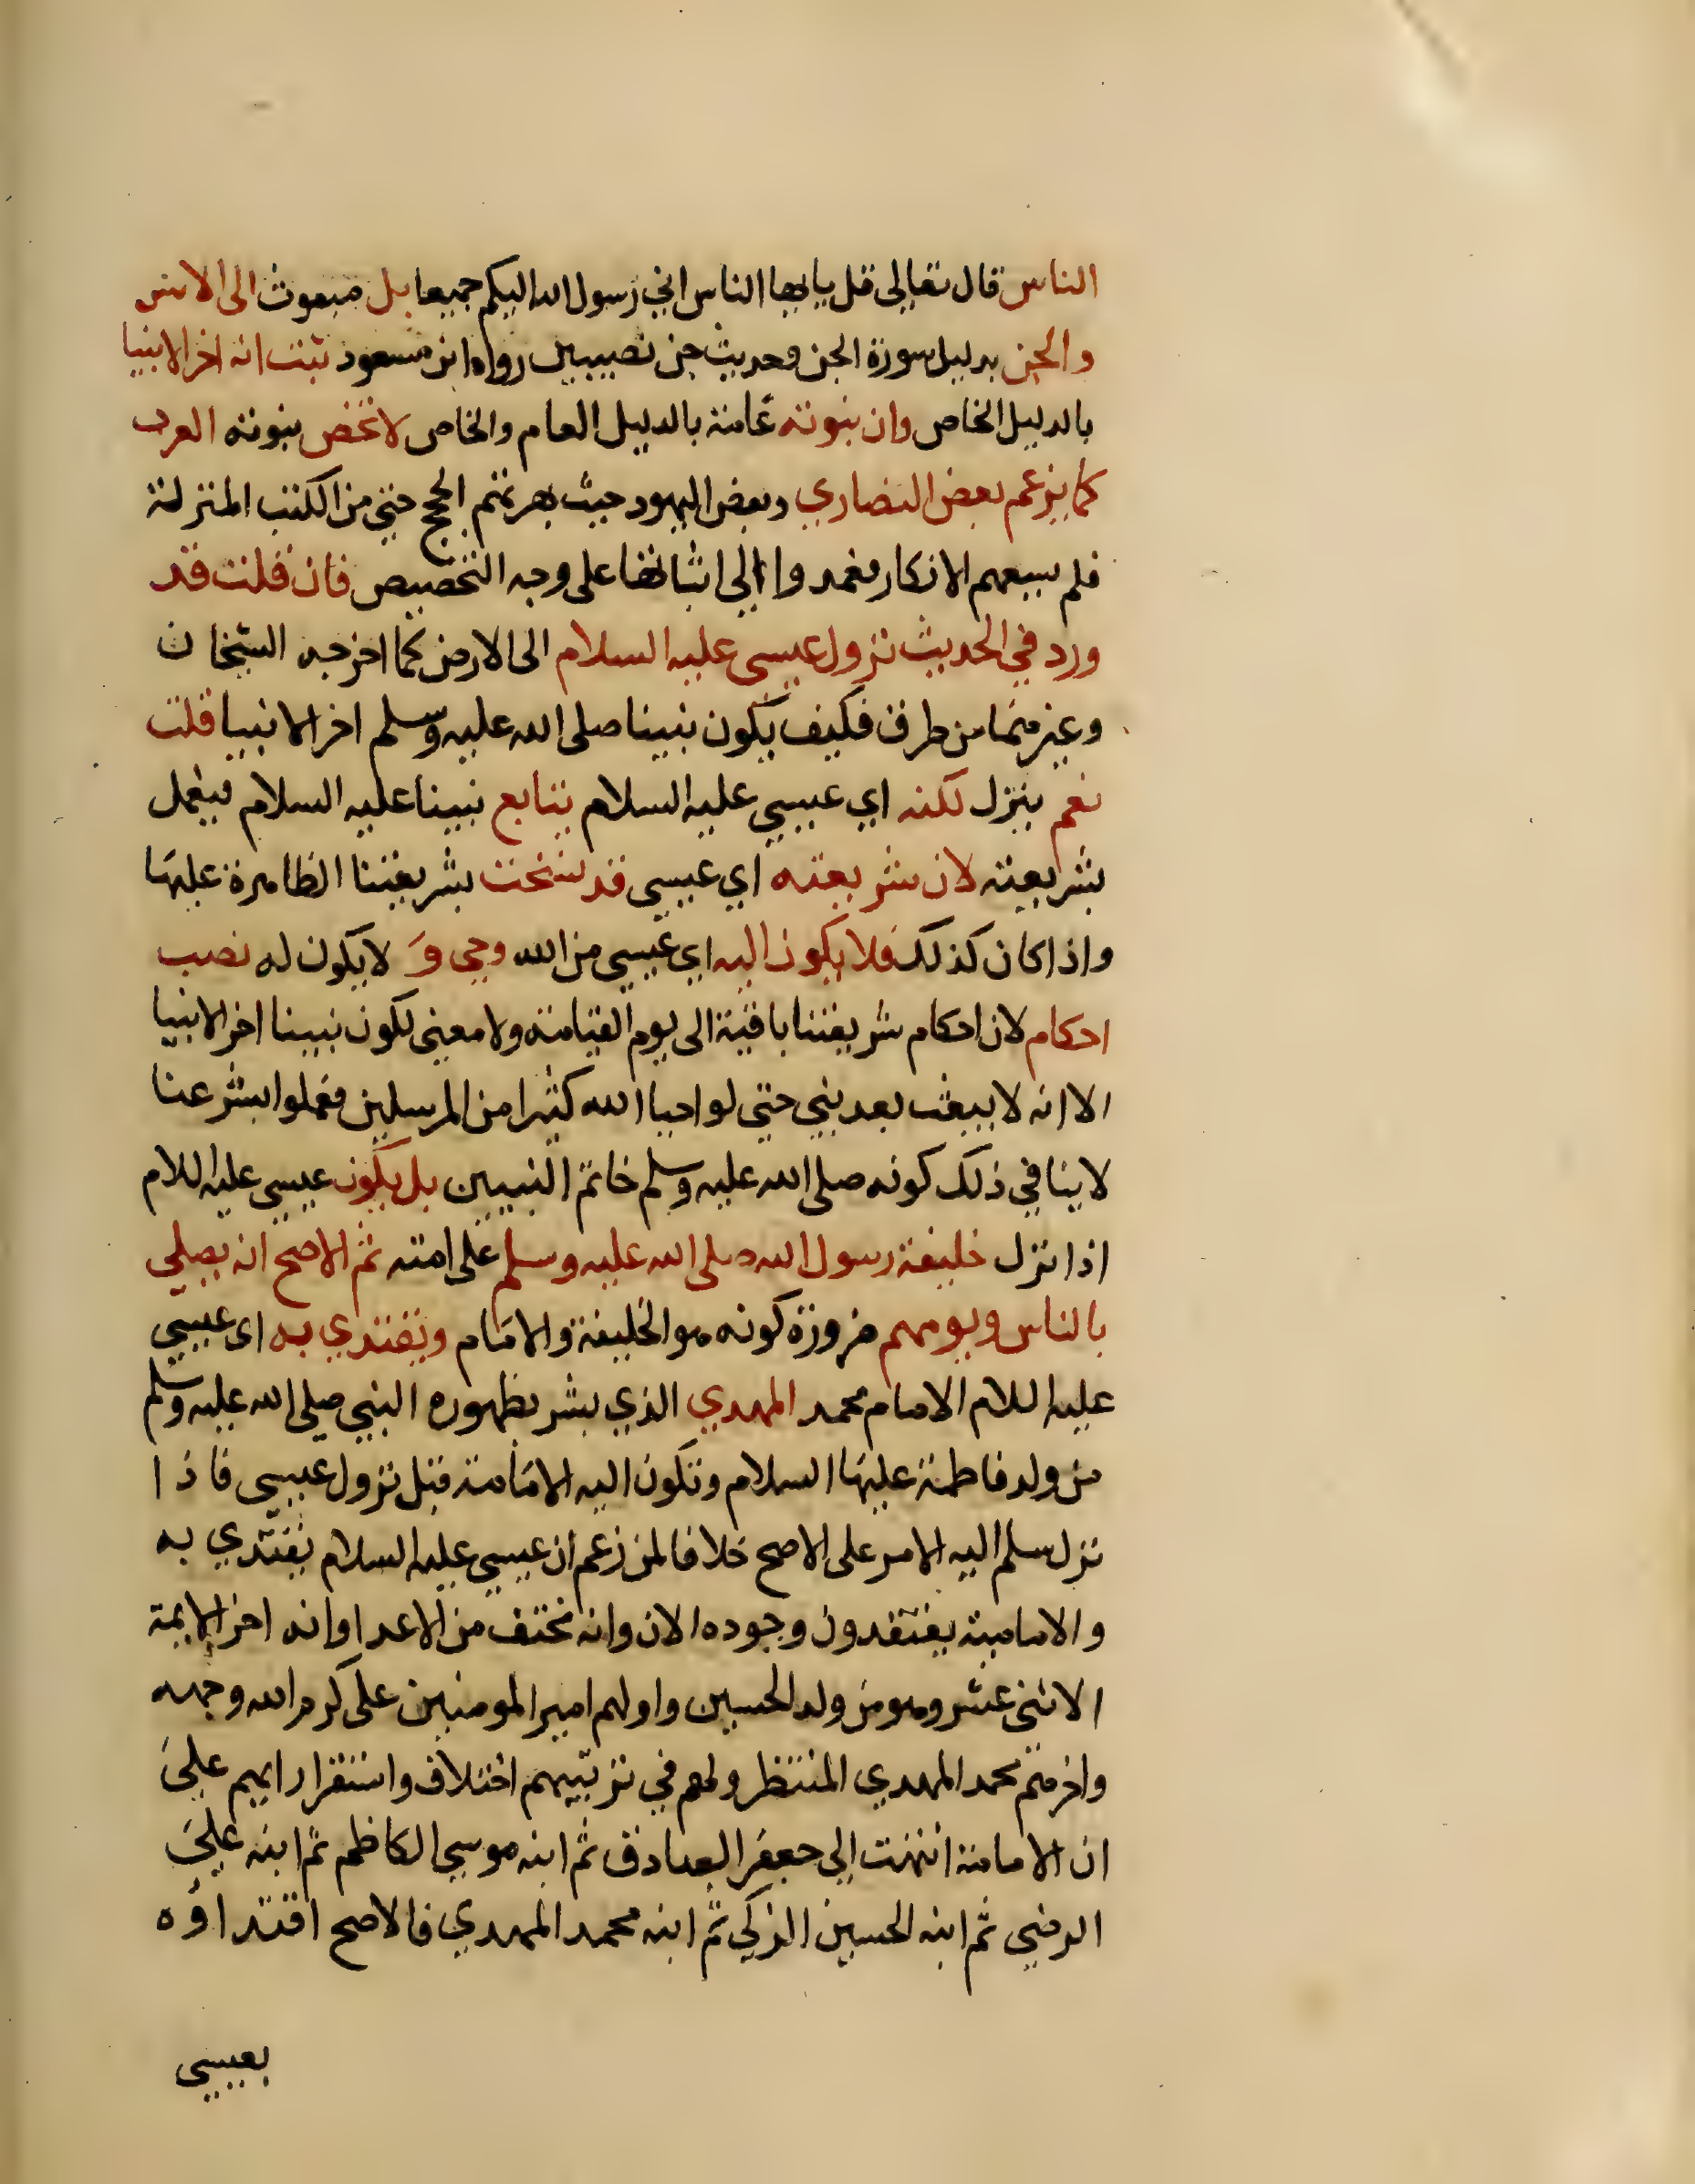 الناس قال تعالى قل يايها الناس اني رسول الله اليكم جميعا بل مبعوث الى الانس
والجن بدليل سورة الجن وحديث جن نصيبين رواه ابن مسعود ثبت انه اخر الانبيا
بالدليل الخاص وان نبوته عامة بالدليل العام والخاص لا تخص بنبوته العرب
كما يزعم بعض النصاري وبعض اليهود حيث بهرتهم الحجج حتي من الكتب المنزلة
فلم يسعهم الانكار فعمدوا الي اثباتها على وجه التخصيص فان قلت قد
ورد في الحديث نزول عيسى عليه السلام الى الارض كما اخرجه الشيخان
وغيرهما من طرق فكيف يكون نبينا صلى الله عليه وسلم اخر الانبيا قلت
نعم ينزل لكنه اي عيسي عليه السلام يتابع نبينا عليه السلام فيعمل
بشريعته لان شريعته اي عيسي قد نسخت بشريعتنا الظاهرة عليها
واذا كان كذلك فلا يكون اليه اي عيسي من الله وحي و لا يكون له نصب
احكام لان احكام شريعتنا باقية الى يوم القيامة ولا معني لكون نبينا اخر الانبيا
الا انه لا يبعث بعد نبي حتي لو احيا الله كثيرا من المرسلين فعملوا بشرعنا
لا ينافي ذلك كونه صلى الله عليه وسلم خاتم النبيين بل يكون عيسي عليه اللام
اذا نزل خليفة رسول الله صلى الله عليه وسلم على امته ثم الاصح انه يصلي
بالناس ويومهم ضرورة كونه هو الخليفة والامام ويقتدي به اى عيسي
عليه اللام الامام محمد المهدي الذي بشر بظهوره النبي صلى الله عليه وسلم
من ولد فاطمة عليها السلام وتكون اليه الامامة قبل نزول عيسي فاذا
نزل سلم اليه الامر على الاصح خلافا لمن زعم ان عيسي عليه السلام يقتدي به
والامامية يعتقدون وجوده الان وانه مختف من الاعدا وانه اخر الايمة
الاثني عشر وهو من ولد الحسين واولهم امير المومنين على كرم الله وجهه
واخرهم محمد المهدي المنتظر ولهم في ترتيبهم اختلاف واستقرار ايهم على
ان الامامة انتهت الي جعفر الصادق ثم ابنه موسي الكاظم ثم ابنه علي
الرضي ثم ابنه الحسين الزكي ثم ابنه محمد المهدي فالاصح اقتداؤه
بعيسي